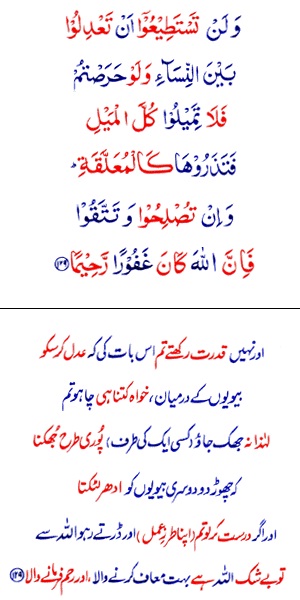 وَلَنْ تَسْتَطِيْعُوْۤا اَنْ تَعْدِلُوْا
بَيْنَ النِّسَآءِ وَلَوْ حَرَصْتُمْ
فَلَا تَمِيْلُوْا كُلَّ الْمَيْلِ
فَتَذَرُوْهَا كَالْمُعَلَّقَةِ ؕ
وَاِنْ تُصْلِحُوْا وَ تَتَّقُوْا
فَاِنَّ اللّٰهَ كَانَ غَفُوْرًا رَّحِيْمًا ﴿۱۲۹﴾
اور نہیں قدرت رکھتے تم اس بات کی کہ عدل کر سکو
بیویوں کے درمیان، خواہ کتنا ہی چاہو تم
لہٰذا نہ جھک جاؤ (کسی ایک کی طرف) پُوری طرح جُھکنا
کہ چھوڑ دو دوسری بیویوں کو ادھر لٹکتا
اور اگر درست کر لو تم (اپنا طرزِ عمل) اور ڈرتے رہو اللہ سے
تو بے شک اللہ ہے بہت معاف کرنے والا، اور رحم فرمانے والا ﴿۱۲۹﴾